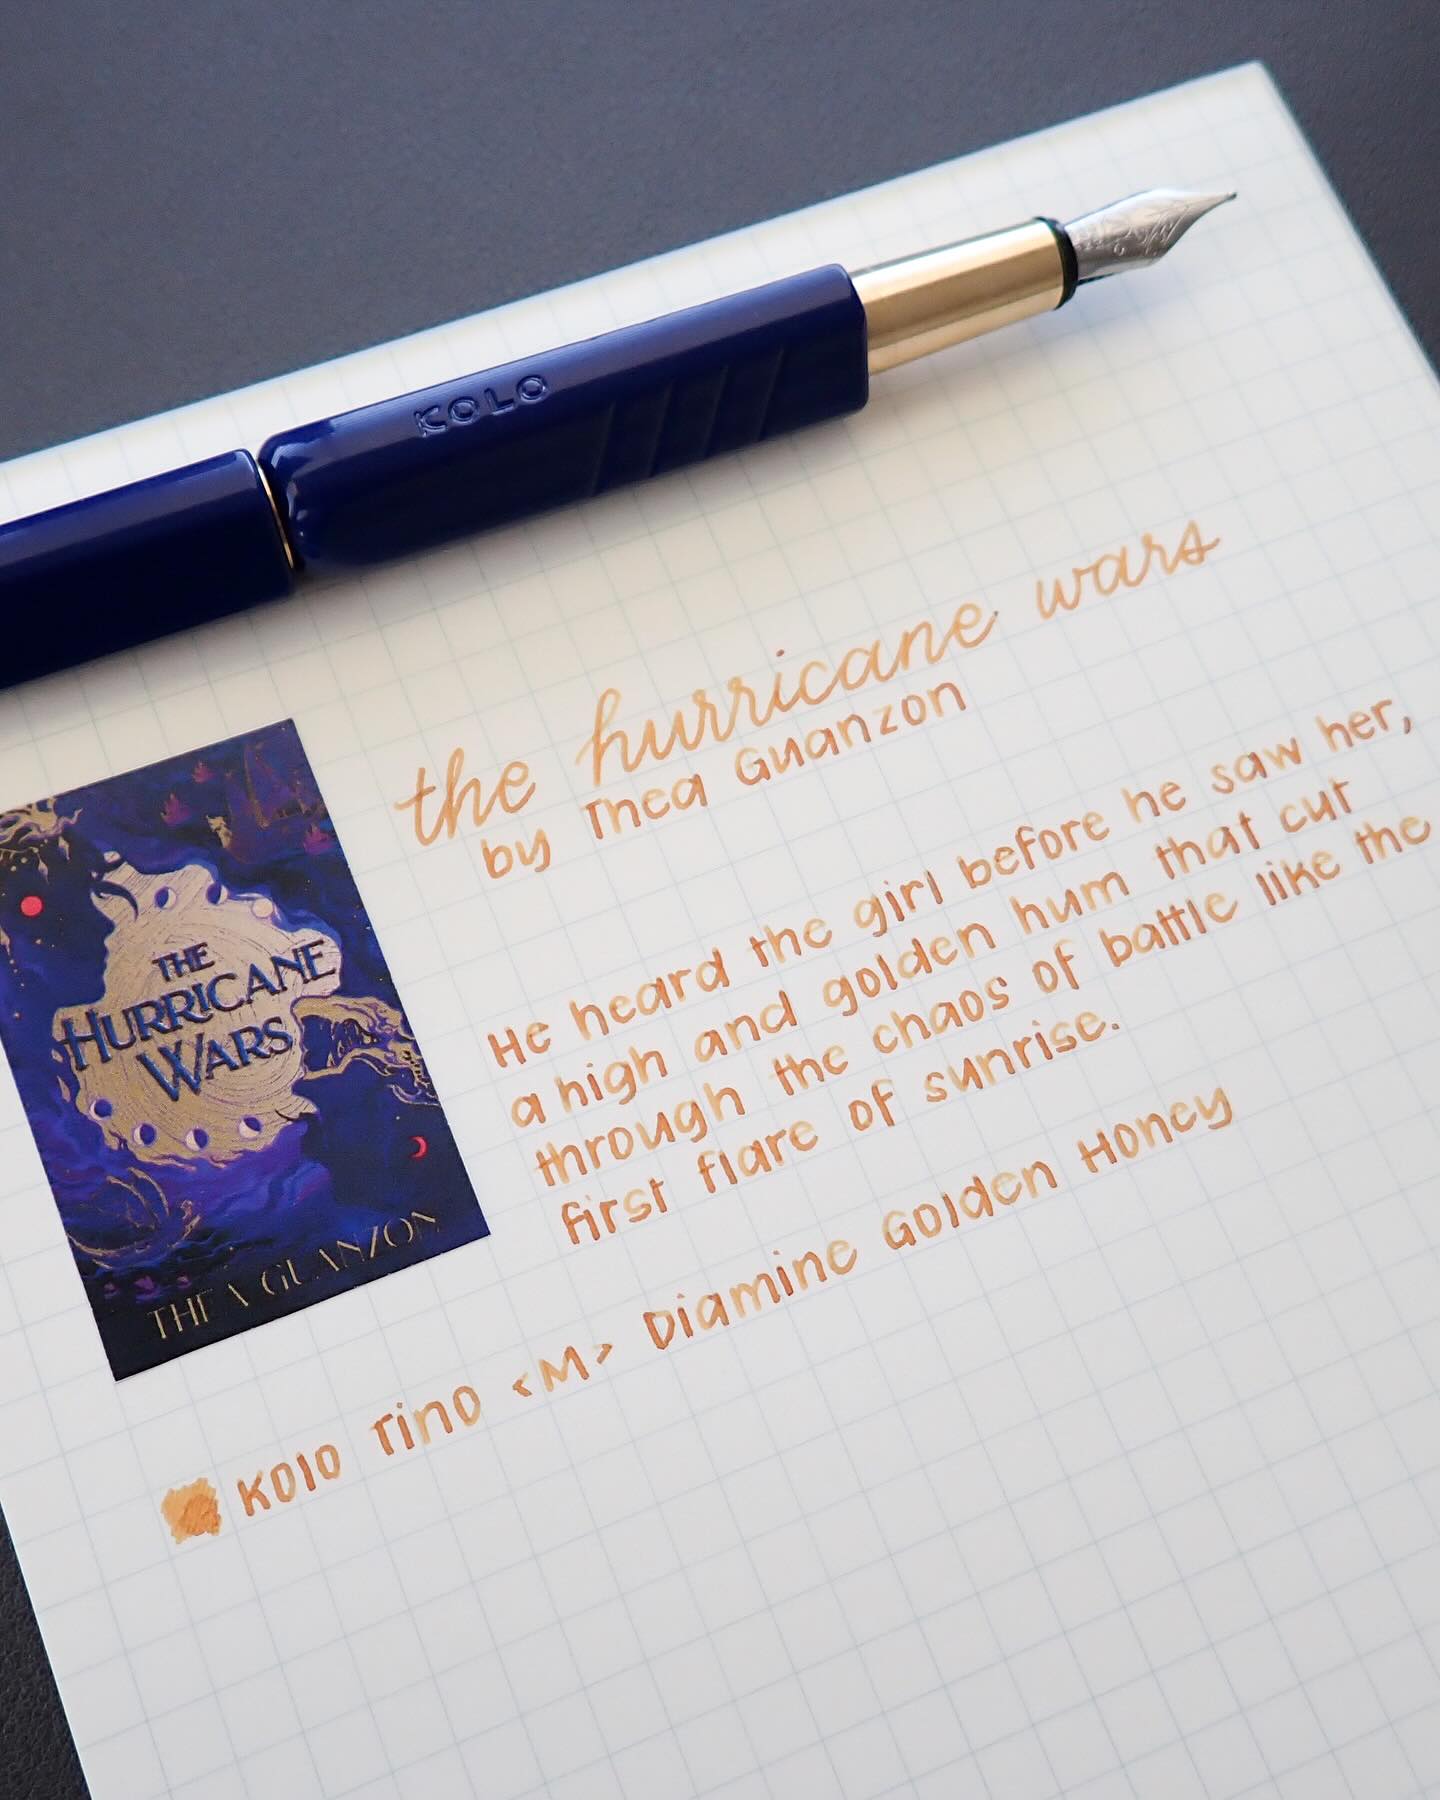 KOLO
the hurricane wars
by Thea Guanzon
He heard the girl before he saw her,
a high and golden hum that cut
through the chaos of battle like the
first flare of sunrise.
THE
HURRICANE
WARS
THEA GUANZON
Kolo Tino <M> Diamine Golden Honey